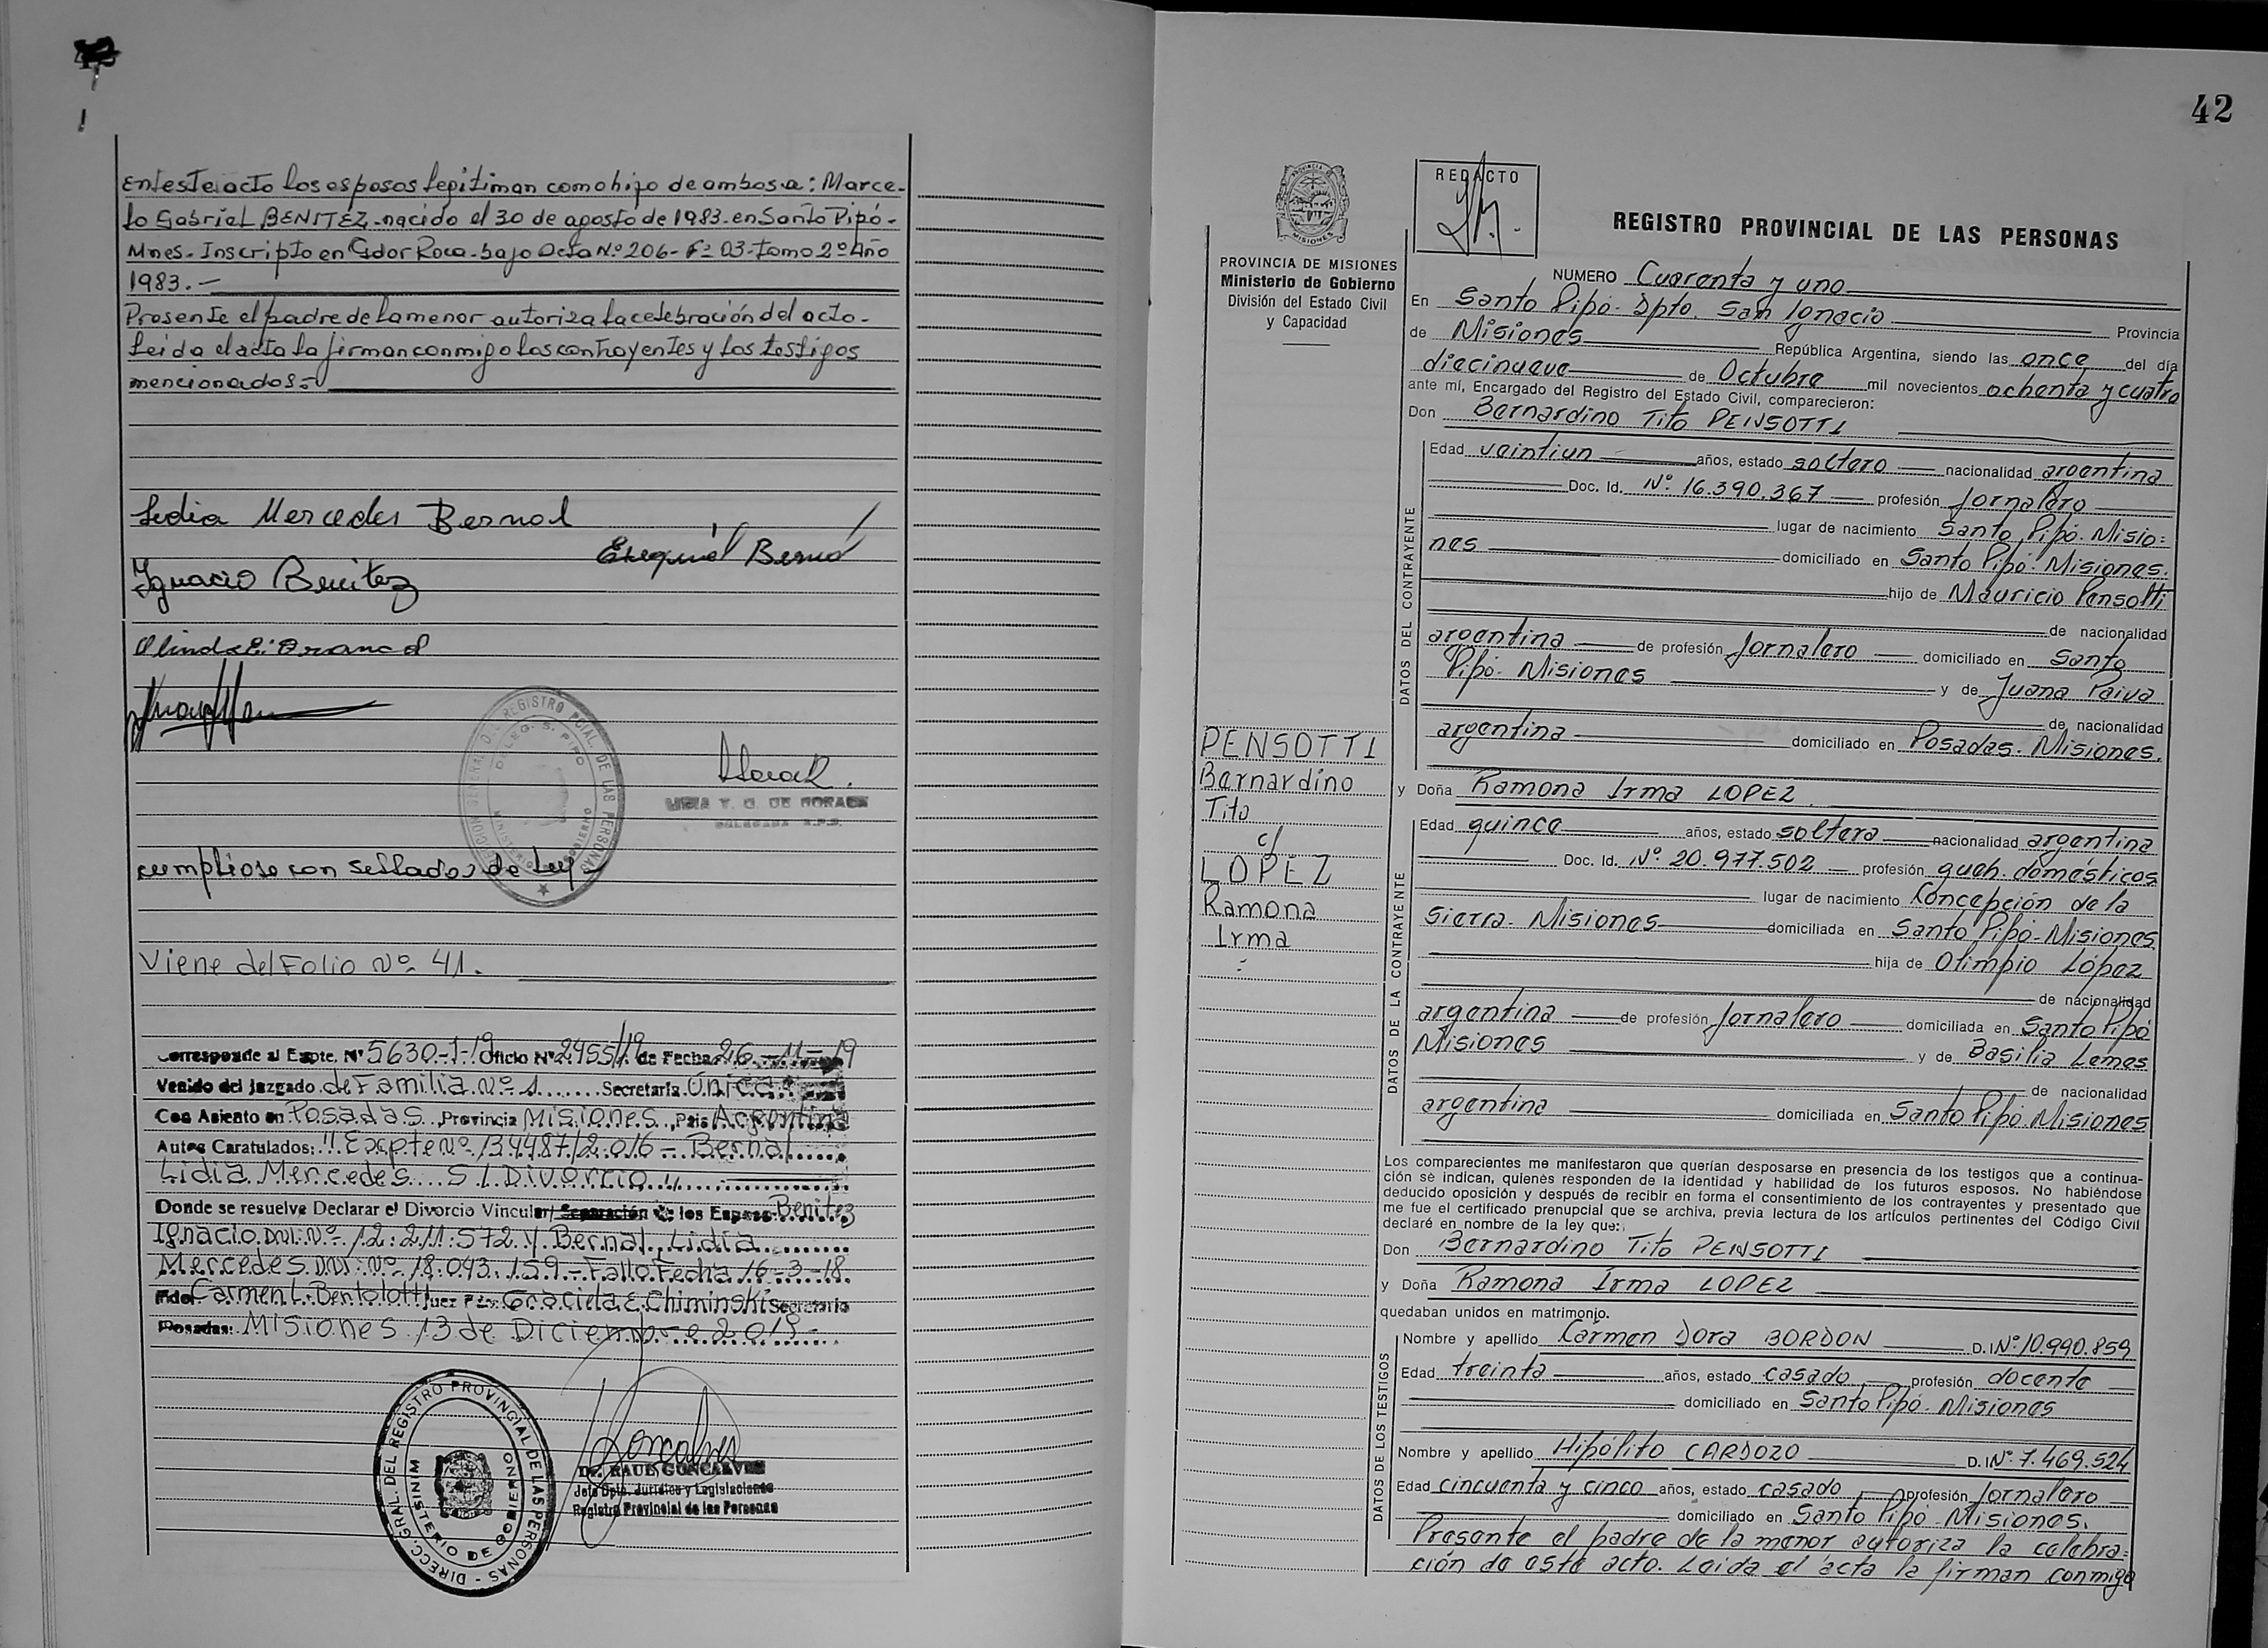 En este acto los esposos legitiman como hijo de ambos a: Marce-
lo Gabriel BENITEZ nacido el 30 de agosto de 1983. en Santo Pipó-
Mnes. Inscripto en Gdor Roca. bajo Acta Nº 206- Fº 03-tomo 2º Año
1983.-
Presente el padre de la menor autoriza la celebración del acto-
leida el acta la firman conmigo los contrayentes y los testigos
mencionados.-
Lidia Mercedes Bernal
Exequiel Bernal
Ignacio Benitez
REGISTRO PCIAL. DE LAS PERSONAS
DELEG. S. PIPO
cumpliose con sellados de Ley
Viene del Folio Nº 41.
Corresponde al Expte. Nº 5630-1-19 Oficio Nº 2455/19 de Fecha 26-11-19
Venido del Juzgado de Familia Nº 1 Secretaría Única
Con Asiento en Posadas, Provincia Misiones, País Argentina
Autos Caratulados: "Expte Nº 134487/2.016 - Bernal
Lidia Mercedes S/Divorcio"
Donde se resuelve Declarar el Divorcio Vincular/Separación de los Esposos Benitez
Ignacio DNI: Nº 12.211.572 y Bernal, Lidia
Mercedes DNI: Nº 18.043.159.- Fallo Fecha 16-3-18.
Fdo: Carmen L. Bertolotti Juez Graciela E. Chiminski Secretario
Posadas: Misiones 13 de Diciembre 2.019-
DIRECC. GRAL. DEL REGISTRO PROVINCIAL DE LAS PERSONAS
MINISTERIO DE GOBIERNO
Dr. RAUL GONCALVES
Jefe Dpto. Jurídico y Legislaciones
Registro Provincial de las Personas
42
REDACTO
PROVINCIA DE MISIONES
Ministerio de Gobierno
División del Estado Civil
y Capacidad
REGISTRO PROVINCIAL DE LAS PERSONAS
NUMERO Cuarenta y uno
En Santo Pipó. Dpto. San Ignacio Provincia
de Misiones República Argentina, siendo las once del día
diecinueve de Octubre mil novecientos ochenta y cuatro
ante mí, Encargado del Registro del Estado Civil, comparecieron:
Don Bernardino Tito PENSOTTI
DATOS DEL CONTRAYENTE
Edad veintiun años, estado soltero nacionalidad argentina
Doc. Id. Nº. 16.390.367 profesión Jornalero
lugar de nacimiento Santo Pipó. Misio=
nes domiciliado en Santo Pipó. Misiones.
hijo de Mauricio Pensotti
de nacionalidad
argentina de profesión Jornalero domiciliado en Santo
Pipó. Misiones y de Juana Paiva
de nacionalidad
argentina domiciliado en Posadas. Misiones.
PENSOTTI
Bernardino
Tito
c/
LOPEZ
Ramona
Irma
y Doña Ramona Irma LOPEZ
DATOS DE LA CONTRAYENTE
Edad quince años, estado soltera nacionalidad argentina
Doc. Id. Nº. 20.977.502 profesión queh. domésticos
lugar de nacimiento Concepción de la
Sierra- Misiones domiciliada en Santo Pipó-Misiones.
hija de Olimpio López
de nacionalidad
argentina de profesión Jornalero domiciliada en Santo Pipó
Misiones y de Basilia Lemes
de nacionalidad
argentina domiciliada en Santo Pipó. Misiones
Los comparecientes me manifestaron que querían desposarse en presencia de los testigos que a continua-
ción se indican, quienes responden de la identidad y habilidad de los futuros esposos. No habiéndose
deducido oposición y después de recibir en forma el consentimiento de los contrayentes y presentado que
me fue el certificado prenupcial que se archiva, previa lectura de los artículos pertinentes del Código Civil
declaré en nombre de la ley que:
Don Bernardino Tito PENSOTTI
y Doña Ramona Irma LOPEZ
quedaban unidos en matrimonio.
DATOS DE LOS TESTIGOS
Nombre y apellido Carmen Dora BORDON D.I Nº 10.990.859
Edad treinta años, estado casado profesión docente
domiciliado en Santo Pipó. Misiones
Nombre y apellido Hipólito CARDOZO D.I Nº. 7.469.524
Edad cincuenta y cinco años, estado casado profesión Jornalero
domiciliado en Santo Pipó. Misiones.
Presente el padre de la menor autoriza la celebra=
ción de este acto. Leida el acta la firman conmigo